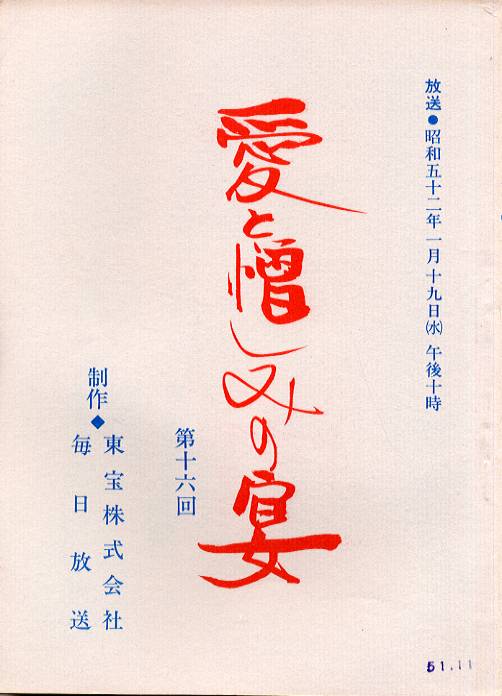 放送●昭和五十二年一月十九日(水) 午後十時
愛と憎しみの宴
第十六回
制作◆東宝株式会社
毎日放送
51.11